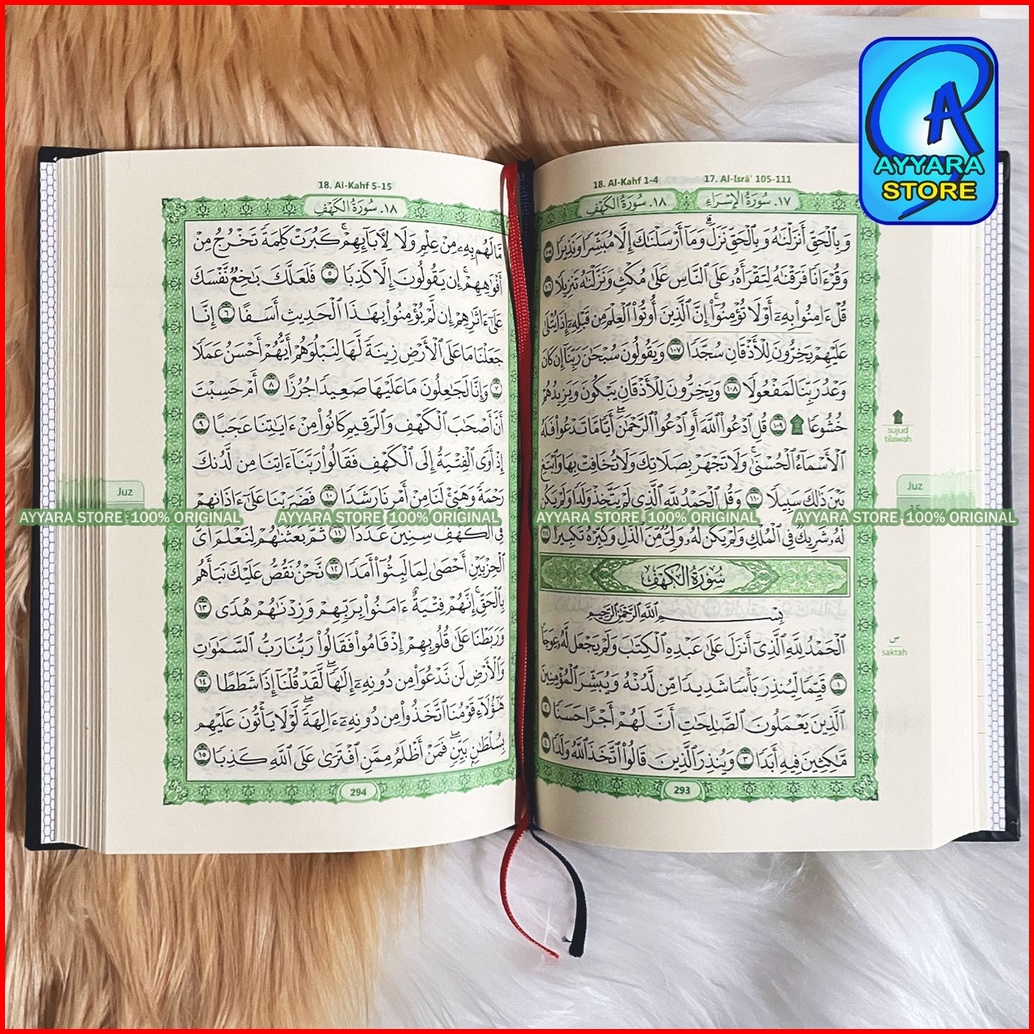 AYYARA
STORE
18. Al-Kahf 1-4 17. Al-Isrā' 105-111
١٧. سُورَةُ الْإِسْرَاءِ ١٨. سُورَةُ الْكَهْفِ
وَبِٱلْحَقِّ أَنزَلْنَٰهُ وَبِٱلْحَقِّ نَزَلَ ۗ وَمَآ أَرْسَلْنَٰكَ إِلَّا مُبَشِّرًا وَنَذِيرًا ١٠٥
وَقُرْءَانًا فَرَقْنَٰهُ لِتَقْرَأَهُۥ عَلَى ٱلنَّاسِ عَلَىٰ مُكْثٍ وَنَزَّلْنَٰهُ تَنزِيلًا ١٠٦
قُلْ ءَامِنُوا۟ بِهِۦٓ أَوْ لَا تُؤْمِنُوٓا۟ ۚ إِنَّ ٱلَّذِينَ أُوتُوا۟ ٱلْعِلْمَ مِن قَبْلِهِۦٓ إِذَا يُتْلَىٰ
عَلَيْهِمْ يَخِرُّونَ لِلْأَذْقَانِ سُجَّدًا ١٠٧ وَيَقُولُونَ سُبْحَٰنَ رَبِّنَآ إِن كَانَ
وَعْدُ رَبِّنَا لَمَفْعُولًا ١٠٨ وَيَخِرُّونَ لِلْأَذْقَانِ يَبْكُونَ وَيَزِيدُهُمْ
خُشُوعًا ۩ ١٠٩ قُلِ ٱدْعُوا۟ ٱللَّهَ أَوِ ٱدْعُوا۟ ٱلرَّحْمَٰنَ ۖ أَيًّا مَّا تَدْعُوا۟ فَلَهُ
ٱلْأَسْمَآءُ ٱلْحُسْنَىٰ ۚ وَلَا تَجْهَرْ بِصَلَاتِكَ وَلَا تُخَافِتْ بِهَا وَٱبْتَغِ
بَيْنَ ذَٰلِكَ سَبِيلًا ١١٠ وَقُلِ ٱلْحَمْدُ لِلَّهِ ٱلَّذِى لَمْ يَتَّخِذْ وَلَدًا وَلَمْ يَكُن
لَّهُۥ شَرِيكٌ فِى ٱلْمُلْكِ وَلَمْ يَكُن لَّهُۥ وَلِىٌّ مِّنَ ٱلذُّلِّ ۖ وَكَبِّرْهُ تَكْبِيرًۢا ١١١
سُورَةُ الْكَهْفِ
بِسْمِ ٱللَّهِ ٱلرَّحْمَٰنِ ٱلرَّحِيمِ
ٱلْحَمْدُ لِلَّهِ ٱلَّذِىٓ أَنزَلَ عَلَىٰ عَبْدِهِ ٱلْكِتَٰبَ وَلَمْ يَجْعَل لَّهُۥ عِوَجَا
١ قَيِّمًا لِّيُنذِرَ بَأْسًا شَدِيدًا مِّن لَّدُنْهُ وَيُبَشِّرَ ٱلْمُؤْمِنِينَ
ٱلَّذِينَ يَعْمَلُونَ ٱلصَّٰلِحَٰتِ أَنَّ لَهُمْ أَجْرًا حَسَنًا ٢
مَّٰكِثِينَ فِيهِ أَبَدًا ٣ وَيُنذِرَ ٱلَّذِينَ قَالُوا۟ ٱتَّخَذَ ٱللَّهُ وَلَدًا ٤
293
sujud
tilawah
Juz
15
س
saktah
18. Al-Kahf 5-15
١٨. سُورَةُ الْكَهْفِ
مَّا لَهُم بِهِۦ مِنْ عِلْمٍ وَلَا لِـَٔابَآئِهِمْ ۚ كَبُرَتْ كَلِمَةً تَخْرُجُ مِنْ
أَفْوَٰهِهِمْ ۚ إِن يَقُولُونَ إِلَّا كَذِبًا ٥ فَلَعَلَّكَ بَٰخِعٌ نَّفْسَكَ
عَلَىٰٓ ءَاثَٰرِهِمْ إِن لَّمْ يُؤْمِنُوا۟ بِهَٰذَا ٱلْحَدِيثِ أَسَفًا ٦ إِنَّا
جَعَلْنَا مَا عَلَى ٱلْأَرْضِ زِينَةً لَّهَا لِنَبْلُوَهُمْ أَيُّهُمْ أَحْسَنُ عَمَلًا
٧ وَإِنَّا لَجَٰعِلُونَ مَا عَلَيْهَا صَعِيدًا جُرُزًا ٨ أَمْ حَسِبْتَ
أَنَّ أَصْحَٰبَ ٱلْكَهْفِ وَٱلرَّقِيمِ كَانُوا۟ مِنْ ءَايَٰتِنَا عَجَبًا ٩
إِذْ أَوَى ٱلْفِتْيَةُ إِلَى ٱلْكَهْفِ فَقَالُوا۟ رَبَّنَآ ءَاتِنَا مِن لَّدُنكَ
رَحْمَةً وَهَيِّئْ لَنَا مِنْ أَمْرِنَا رَشَدًا ١٠ فَضَرَبْنَا عَلَىٰٓ ءَاذَانِهِمْ
فِى ٱلْكَهْفِ سِنِينَ عَدَدًا ١١ ثُمَّ بَعَثْنَٰهُمْ لِنَعْلَمَ أَىُّ
ٱلْحِزْبَيْنِ أَحْصَىٰ لِمَا لَبِثُوٓا۟ أَمَدًا ١٢ نَّحْنُ نَقُصُّ عَلَيْكَ نَبَأَهُم
بِٱلْحَقِّ ۚ إِنَّهُمْ فِتْيَةٌ ءَامَنُوا۟ بِرَبِّهِمْ وَزِدْنَٰهُمْ هُدًى ١٣
وَرَبَطْنَا عَلَىٰ قُلُوبِهِمْ إِذْ قَامُوا۟ فَقَالُوا۟ رَبُّنَا رَبُّ ٱلسَّمَٰوَٰتِ
وَٱلْأَرْضِ لَن نَّدْعُوَا۟ مِن دُونِهِۦٓ إِلَٰهًا ۖ لَّقَدْ قُلْنَآ إِذًا شَطَطًا ١٤
هَٰٓؤُلَآءِ قَوْمُنَا ٱتَّخَذُوا۟ مِن دُونِهِۦٓ ءَالِهَةً ۖ لَّوْلَا يَأْتُونَ عَلَيْهِم
بِسُلْطَٰنٍۭ بَيِّنٍ ۖ فَمَنْ أَظْلَمُ مِمَّنِ ٱفْتَرَىٰ عَلَى ٱللَّهِ كَذِبًا ١٥
294
Juz
AYYARA STORE 100% ORIGINAL AYYARA STORE 100% ORIGINAL AYYARA STORE 100% ORIGINAL AYYARA STORE 100% ORIGINAL